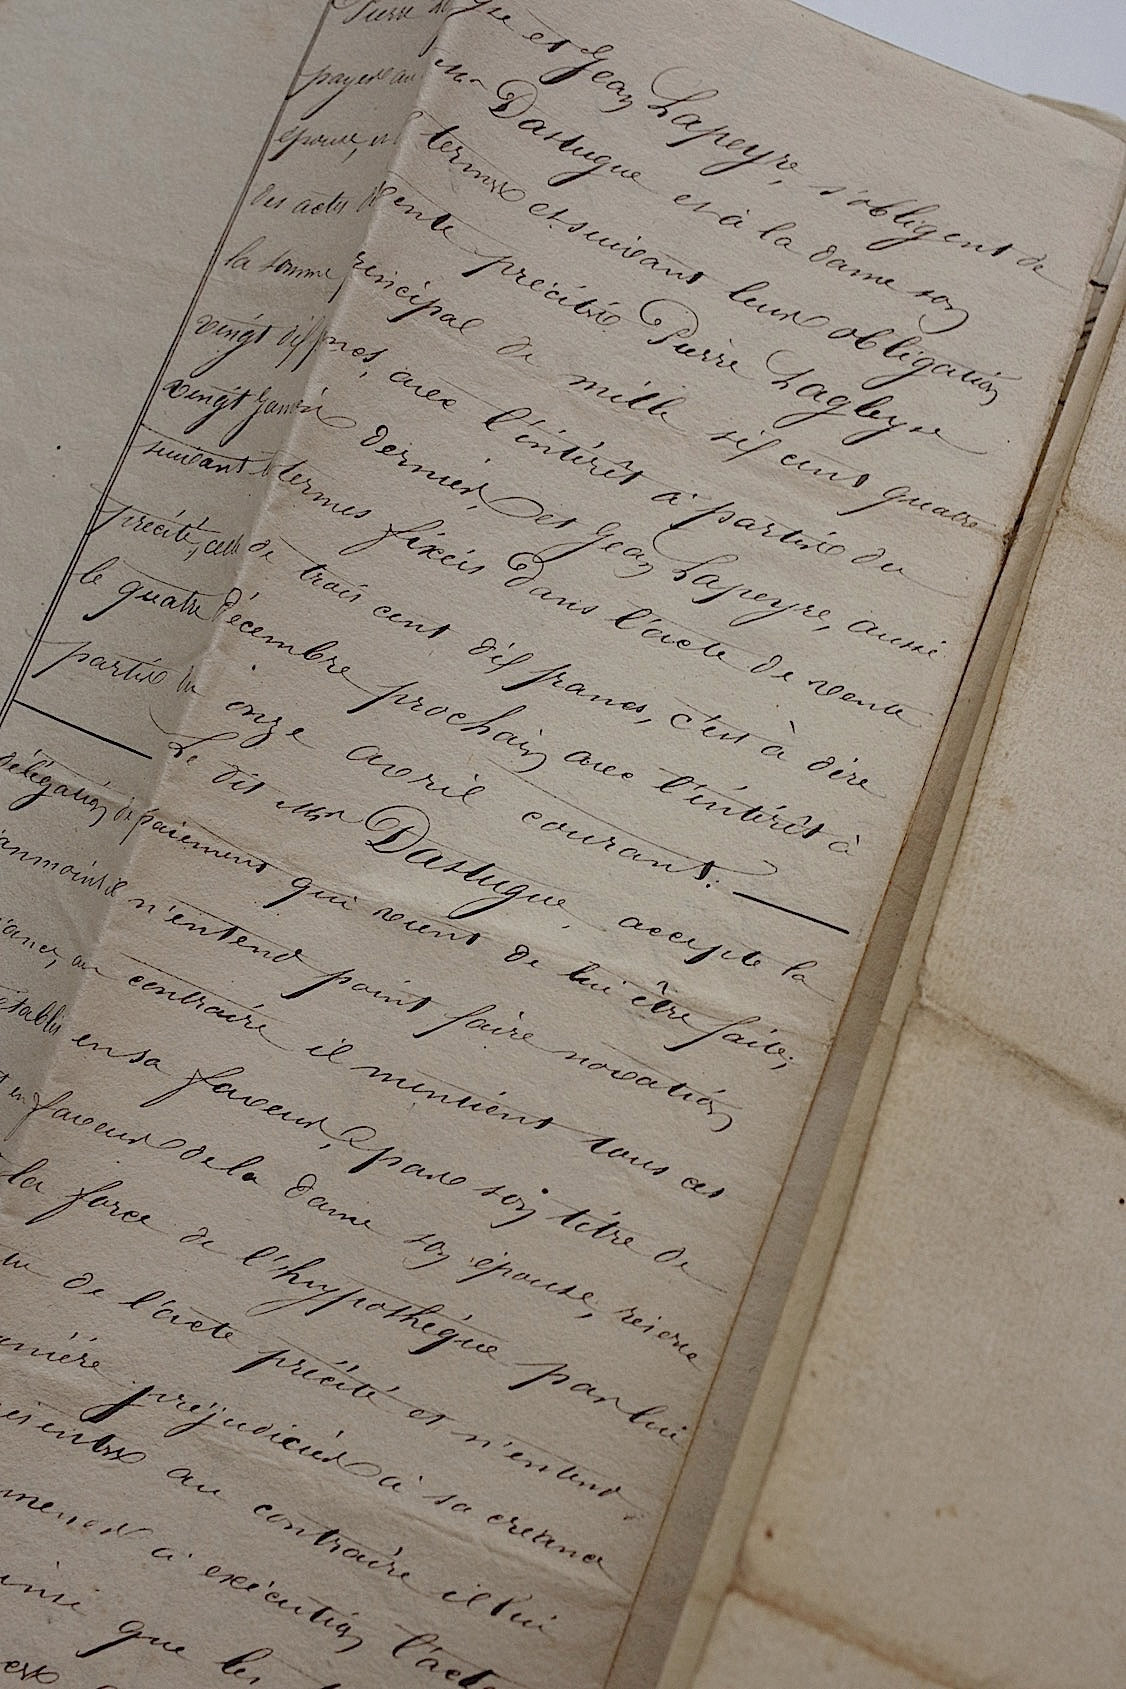 Pierre Lagleyse et Jean Lapeyre, s'obligent de
payer au Mr Dastugue et à la dame son
épouse, et termes et suivant leurs obligation
des actes de vente précités Pierre Lagleyse
la somme principal de mille six cent quatre
vingt dix francs, avec l'intérêt à partir du
vingt Janvier dernier et Jean Lapeyre, aussi
suivant termes fixées dans l'acte de vente
précité, celle de trois cent dix francs, c'est à dire
le quatre Décembre prochain avec l'intérêt à
partir du onze avril courant.
Le dit Mr Dastugue, accepte la
délégation de paiement qui vient de lui être faite;
n'entend point faire novation
au contraire il mentient tous ces
établis en sa faveur, par son titre de
en faveur de la dame son épouse, reserve
la force de l'hypothéque par lui
de l'acte précité et n'entend
préjudicier à sa creance
au contraire il lui
à exécution l'acte
que les